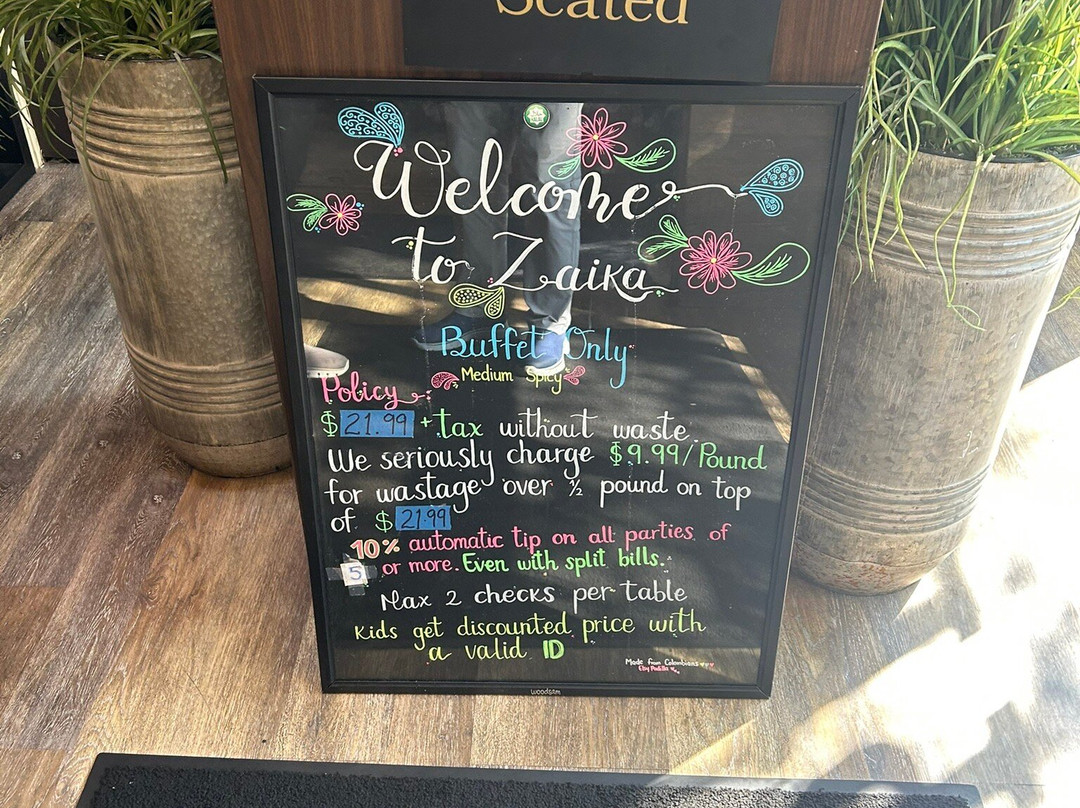 Seated
Welcome
to Zaika
Buffet Only
Medium Spicy
Policy
$21.99 +tax without waste.
We seriously charge $9.99/Pound
for wastage over ½ pound on top
of $21.99
10% automatic tip on all parties of
5 or more. Even with split bills.
Max 2 checks per table
Kids get discounted price with
a valid ID
Made from Colombians
Elsy Padilla
woodsam